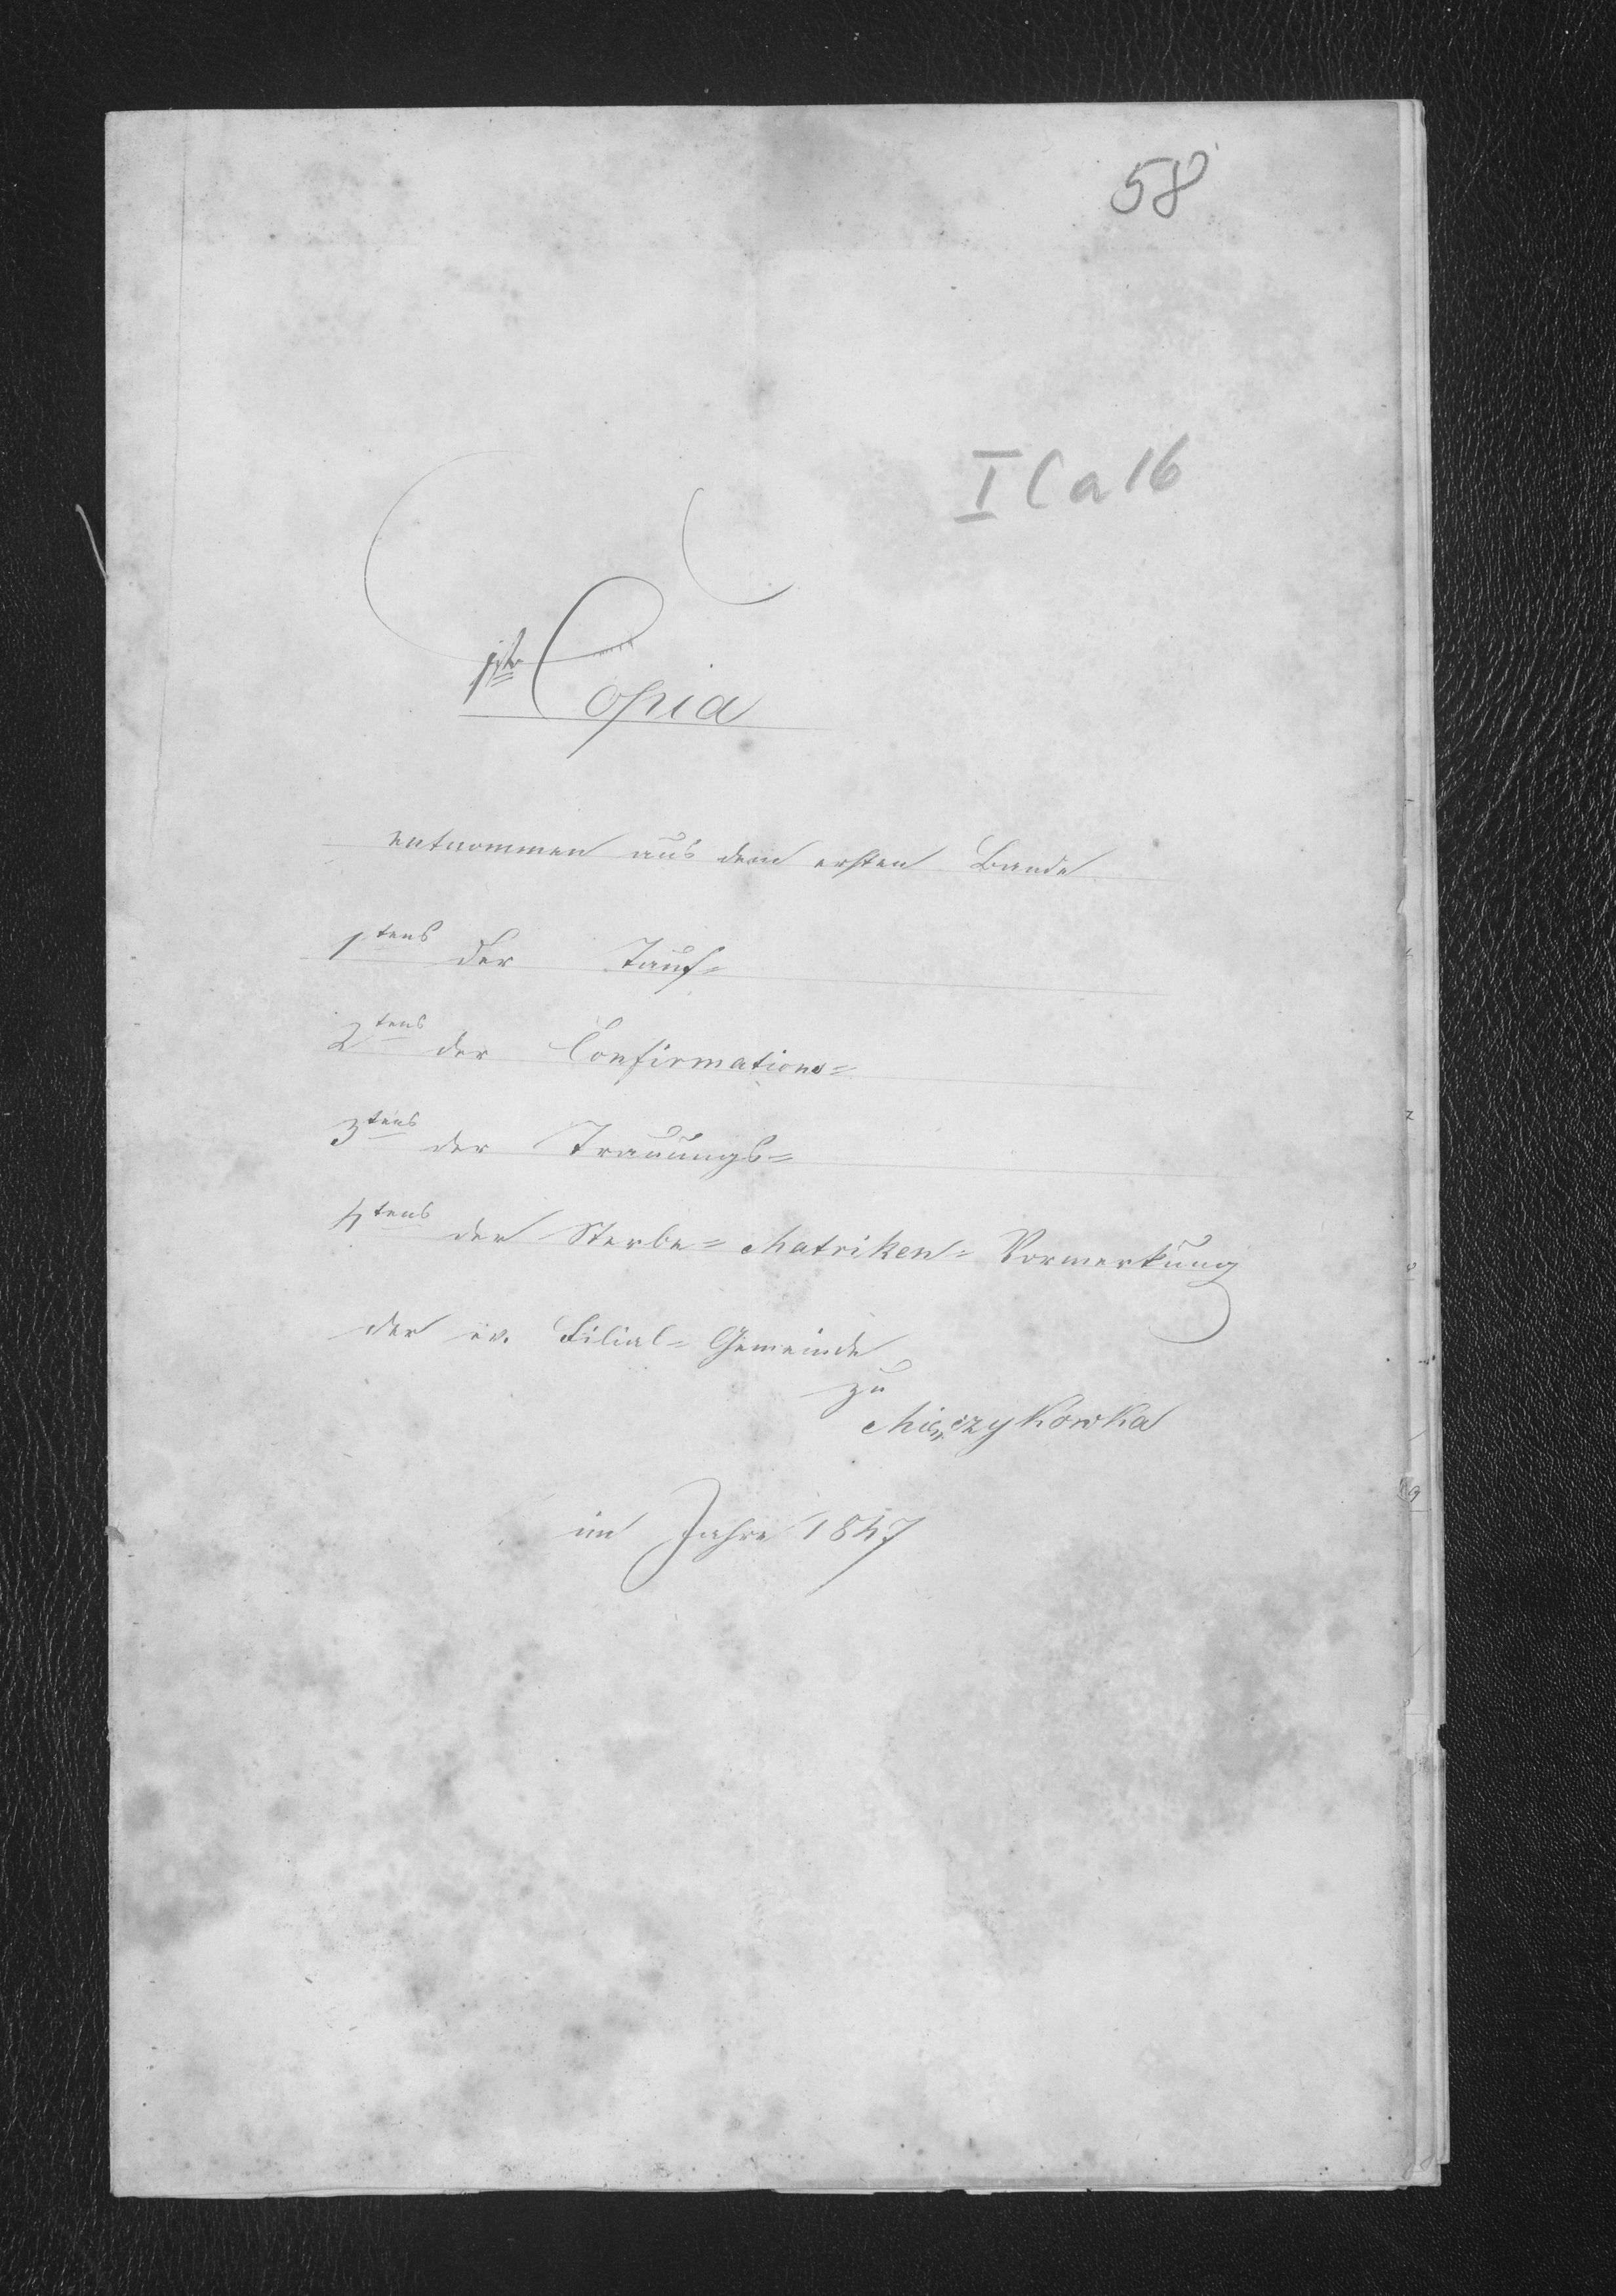 58
I C a 16
1ste Copia
entnommen aus dem ersten Bande
1tens der Tauf=
2tens der Confirmations=
3tens der Trauungs=
4tens der Sterbe= Matriken= Vormerkung
der ev. Filial= Gemeinde
zu
im Jahre 1847